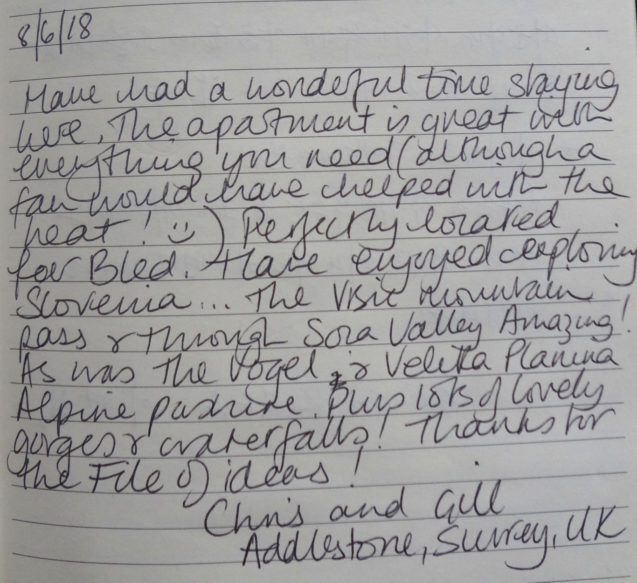 8/6/18
Have had a wonderful time staying
here. The apartment is great with
everything you need (although a
fan would have helped with the
heat! :) ) Perfectly located
for Bled. Have enjoyed exploring
Slovenia... The Visic mountain
pass & through Soca Valley Amazing!
As was the Vogel, & Velika Planina
Alpine pasture. Plus lots of lovely
gorges & waterfalls! Thanks for
the File of ideas!
Chris and Gill
Addlestone, Surrey, UK